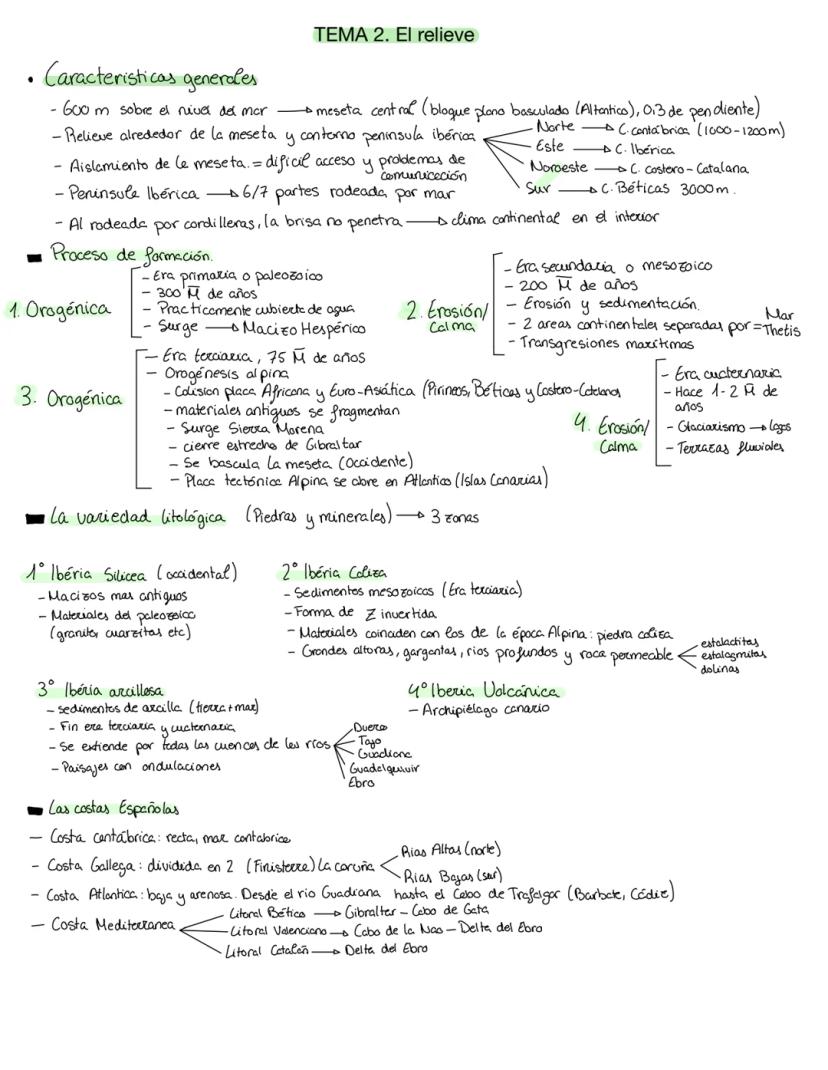 TEMA 2. El relieve
• Caracteristicas generales
- 600 m sobre el nivel del mar → meseta central (bloque plano basculado (Altantico), 0,3 de pendiente)
- Relieve alrededor de la meseta y contorno peninsula ibérica
Norte → C. cantábrica (1000-1200m)
Este → C. Ibérica
Noroeste → C. costero-Catalana
Sur → C. Béticas 3000m.
- Aislamiento de la meseta. = dificil acceso y problemas de comunicación
- Peninsula Ibérica → 6/7 partes rodeada por mar
- Al rodeada por cordilleras, la brisa no penetra → clima continental en el interior
Proceso de formación.
1. Orogénica
- Era primaria o paleozoico
- 300 M de años
- Practicamente cubierta de agua
- Surge → Macizo Hespérico
2. Erosión/ Calma
- Era secundaria o mesozoico
- 200 M de años
- Erosión y sedimentación.
- 2 areas continentales separadas por = Mar Thetis
- Transgresiones marítimas
3. Orogénica
- Era terciaria, 75 M de años
- Orogénesis alpina
- Colision placa Africana y Euro-Asiática (Pirineos, Béticas y Costero-Catalana)
- materiales antiguos se fragmentan
- Surge Sierra Morena
- cierre estrecho de Gibraltar
- Se bascula la meseta (Occidente)
- Placa tectónica Alpina se abre en Atlantico (Islas Canarias)
4. Erosión/ Calma
- Era cuaternaria
- Hace 1-2 M de años
- Glaciarismo → lagos
- Terrazas fluviales
La variedad litológica (Piedras y minerales) → 3 zonas
1° Ibéria Silicea (occidental)
- Macizos mas antiguos
- Materiales del paleozoico
(granito, cuarzitas etc)
2° Ibéria Caliza
- Sedimentos mesozoicos (Era terciaria)
- Forma de Z invertida
- Materiales coinciden con los de la época Alpina: piedra caliza
- Grandes alturas, gargantas, rios profundos y roca permeable
estalactitas
estalagmitas
dolinas
3° Ibéria arcillosa
- sedimentos de arcilla (tierra + mar)
- Fin era terciaria y cuaternaria
- Se extiende por todas las cuencas de los ríos
Duero
Tajo
Guadiana
Guadalquivir
Ebro
- Paisajes con ondulaciones
4° Iberia Volcánica
- Archipiélago canario
Las costas Españolas
- Costa cantábrica: recta, mar cantabrico
- Costa Gallega: dividida en 2 (Finisterre) La coruña
Rias Altas (norte)
Rias Bajas (sur)
- Costa Atlantica: baja y arenosa. Desde el rio Guadiana hasta el Cabo de Trafalgar (Barbate, Cádiz)
- Costa Mediterranea
Litoral Bético → Gibraltar - Cabo de Gata
Litoral Valenciano → Cabo de la Nao - Delta del Ebro
Litoral Catalán → Delta del Ebro